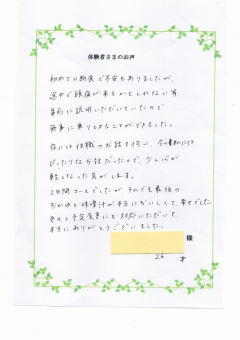 体験者さまのお声
初めての断食で不安もありましたが、
途中で頭痛が来るかもしれない等
事前に説明いただいていたので
無事に乗りきることができました。
夜には住職のお話を伺い、今の私には
ぴったりなお話だったので、少し心が
軽くなった気がします。
2日間コースでしたが それでも最後の
おかゆと味噌汁が本当においしくて、幸せでした
色々と予定変更にも対応いただいて、
本当にありがとうございました。
様
26 才